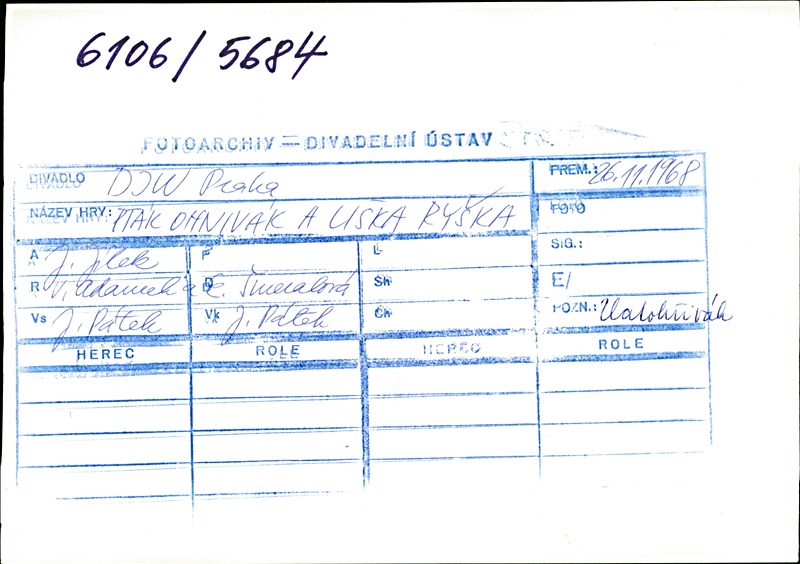 6106/5684
FOTOARCHIV — DIVADELNÍ ÚSTAV
DIVADLO DJW Praha PREM.: 26.11.1968
NÁZEV HRY: PTÁK OHNIVÁK A LIŠKA RYŠKA FOTO
A J. Jílek P L SIG.:
R V. Adamek a E. Šmeralová D Sh E/
Vs J. Pátek Vk J. Pátek Ch POZN.: Zlatohřivák
HEREC ROLE HEREC ROLE